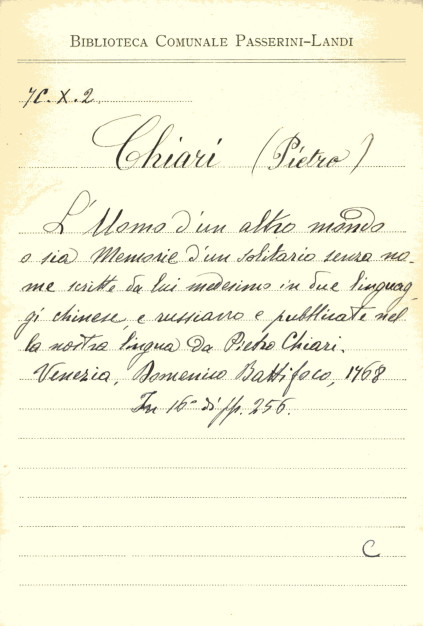 BIBLIOTECA COMUNALE PASSERINI-LANDI
7C. X. 2.
Chiari (Pietro)
L'Uomo d'un altro mondo
o sia Memorie d'un solitario senza no-
me scritte da lui medesimo in due linguag-
gi chinese, e russiano e pubblicate nel-
la nostra lingua da Pietro Chiari.
Venezia, Domenico Battifoco, 1768
In 16° di pp. 256.
C